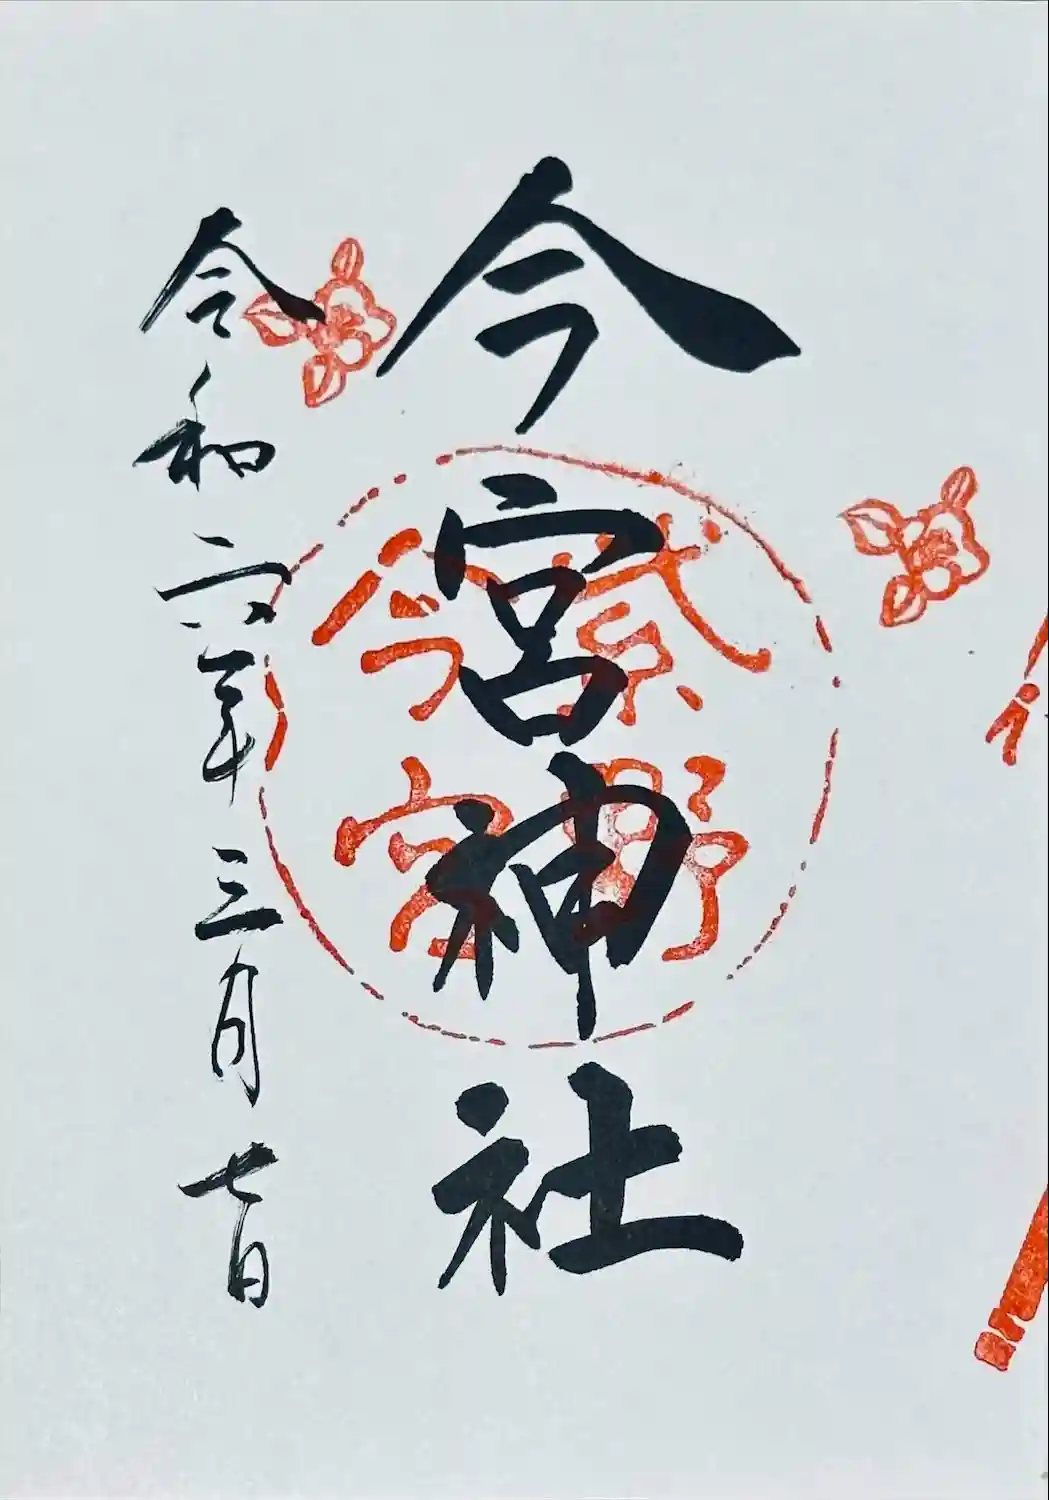 今宮神社
紫野
今宮
令和六年三月七日